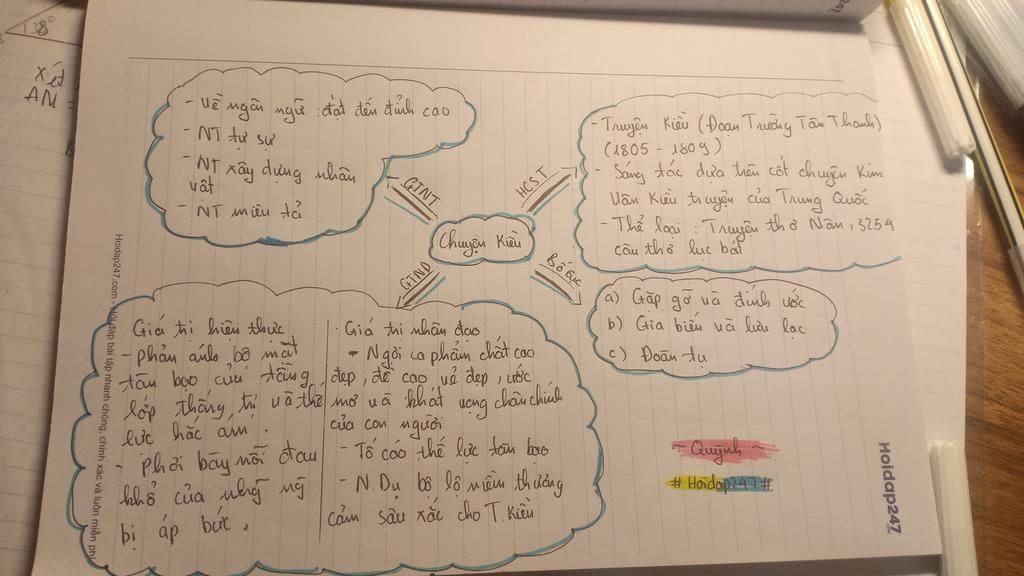 - Về ngôn ngữ : đạt đến đỉnh cao
- NT tự sự
- NT xây dựng nhân
vật
- NT miêu tả
GTNT
HCST
- Truyện Kiều (Đoạn Trường Tân Thanh)
(1805 - 1809)
- Sáng tác dựa trên cốt chuyện Kim
Vân Kiều truyện của Trung Quốc
- Thể loại : Truyện thơ Nôm, 3254
câu thơ lục bát
Chuyện Kiều
GTND
Bố cục
a) Gặp gỡ và đính ước
b) Gia biến và lưu lạc
c) Đoàn tụ
Giá trị hiện thực
- phản ánh bộ mặt
tàn bạo của tầng
lớp thống trị và thế
lực hắc ám.
- phơi bày nỗi đau
khổ của những ng
bị áp bức.
Giá trị nhân đạo
- Ngợi ca phẩm chất cao
đẹp, đề cao vẻ đẹp, ước
mơ và khát vọng chân chính
của con người
- Tố cáo thế lực tàn bạo
- N.Du bộ lộ niềm thương
cảm sâu xắc cho T.Kiều
~ Quỳnh
# Hoidap247 #
Hoidap247
Hoidap247.com
Hỏi đáp bài tập nhanh chóng, chính xác và luôn miễn phí
38°
Xét
AM =